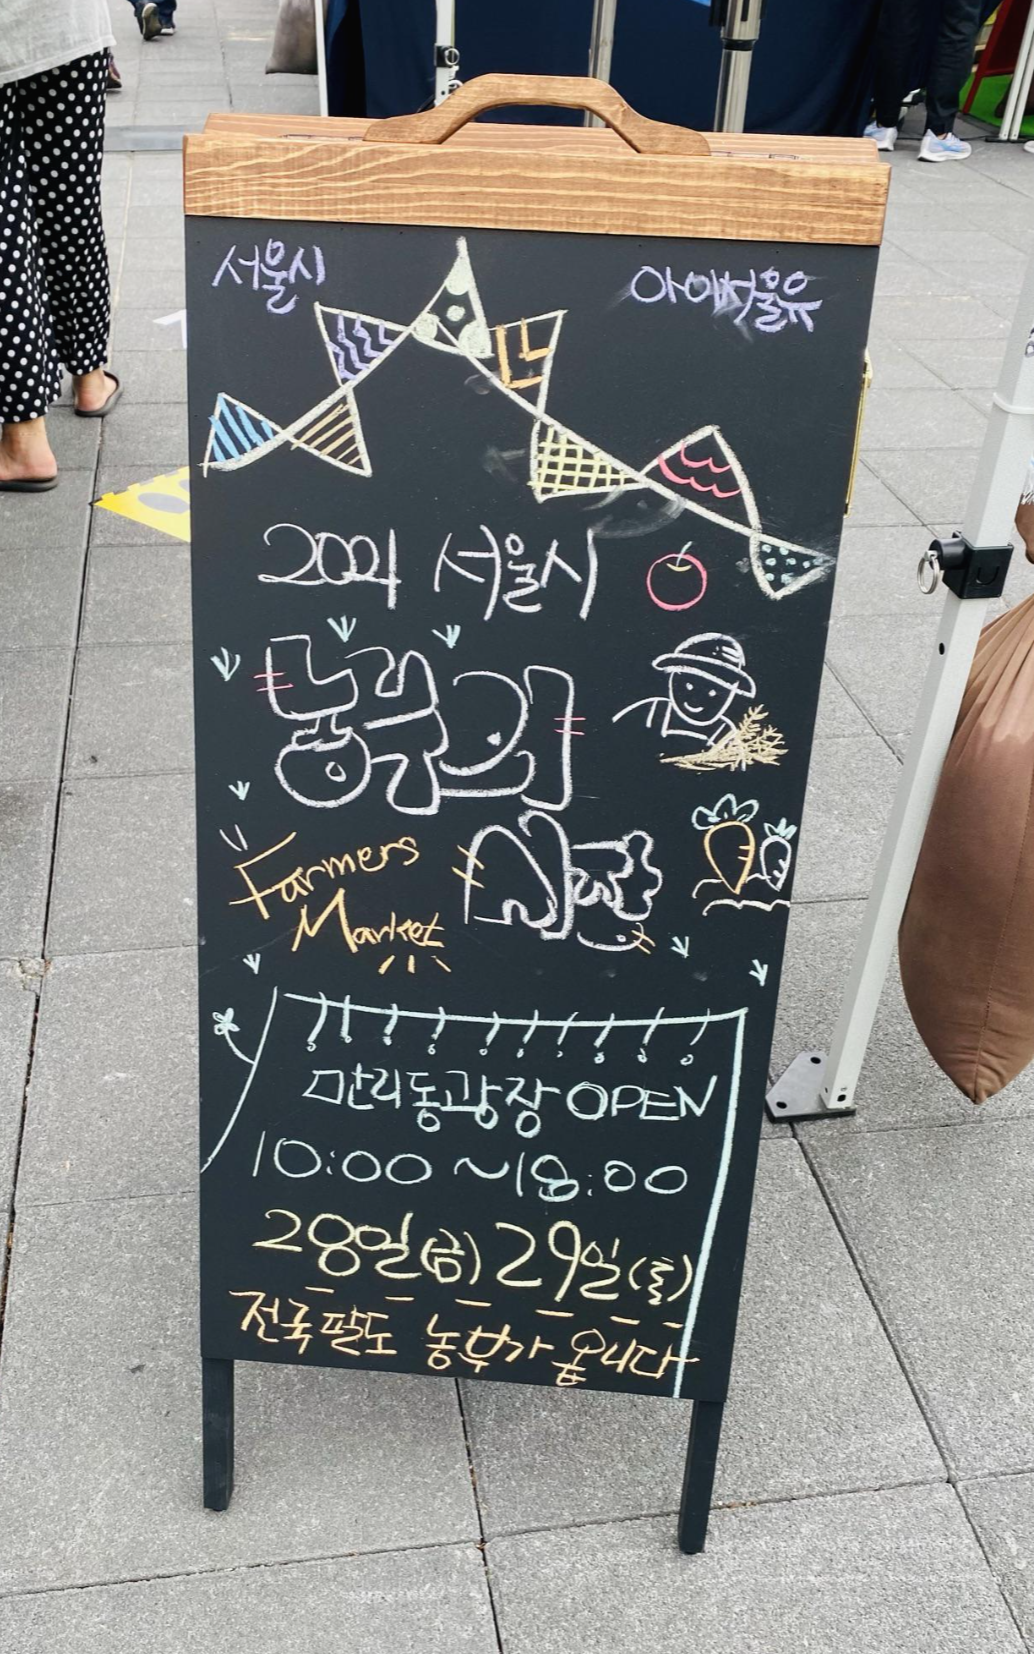 서울시
아이서울유
2021 서울시
농부의
시장
Farmers
Market
만리동광장 OPEN
10:00 ~18:00
28일(금) 29일(토)
전국팔도 농부가 옵니다